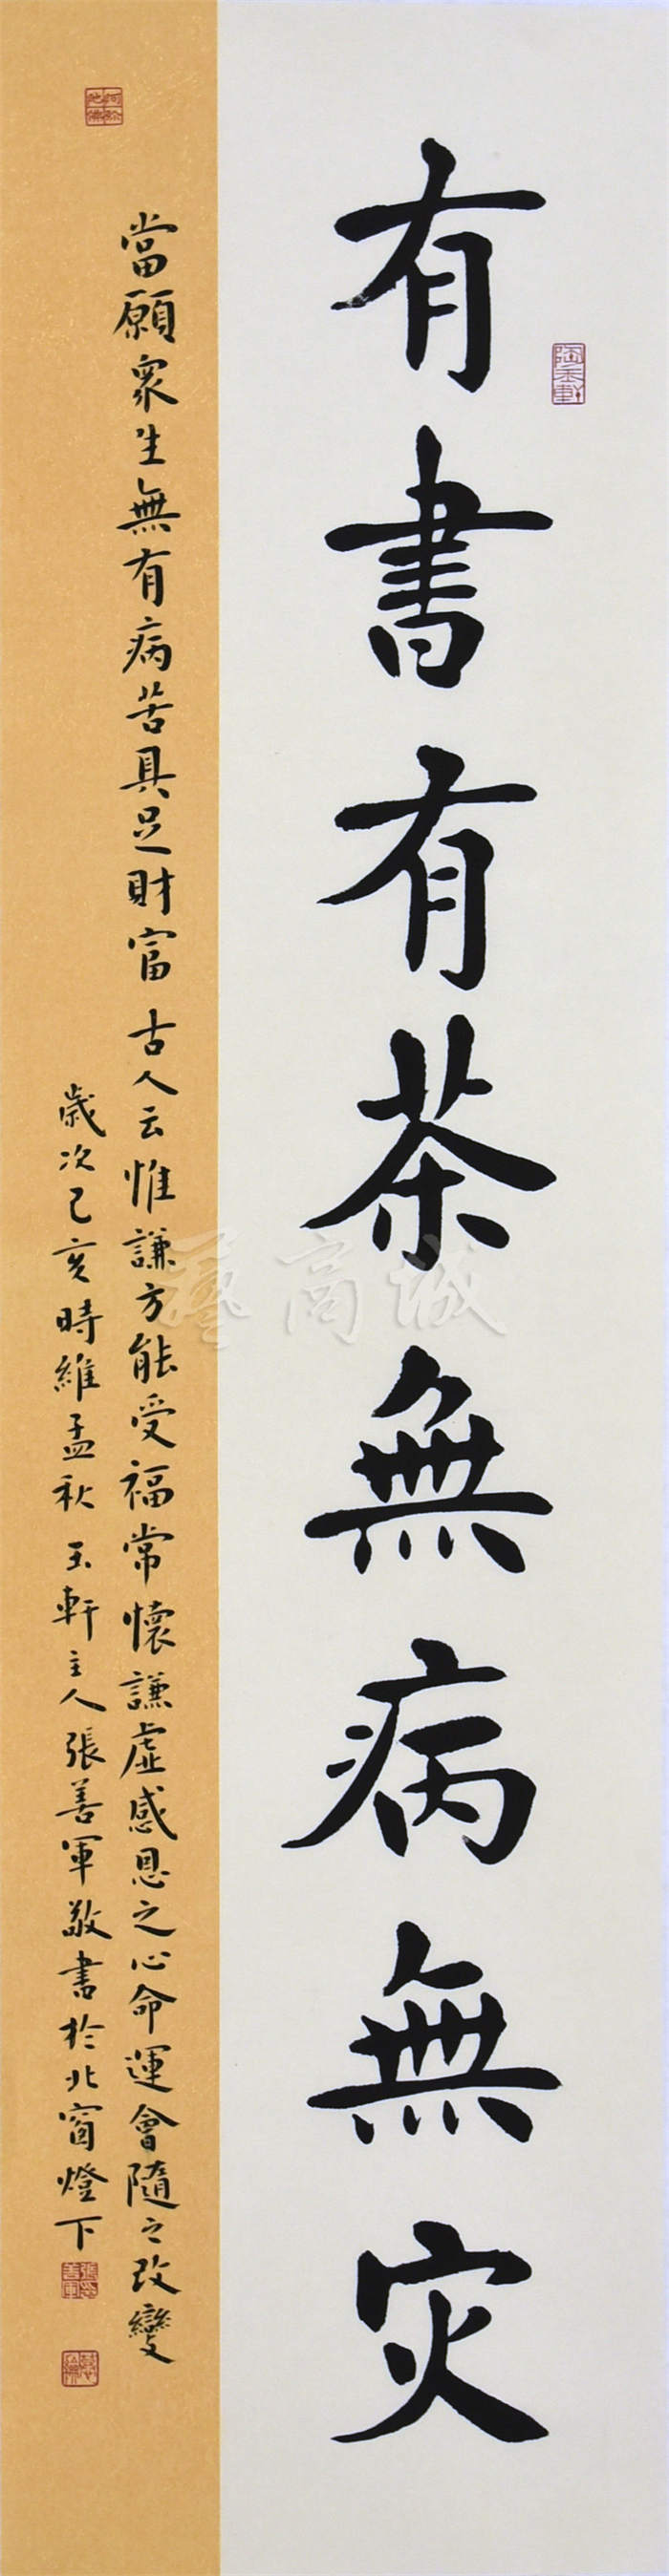 有書有茶無病無灾
當願衆生無有病苦具足財富古人云惟謙方能受福常懷謙虛感恩之心命運會隨之改變
歲次己亥時維孟秋玉軒主人張善軍敬書於北窗燈下
藝高城